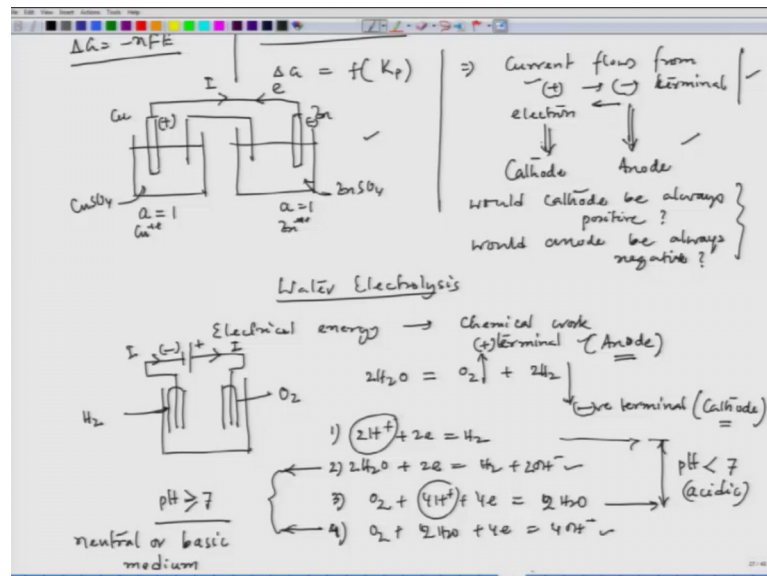 ΔG = -nFE
ΔG = f(Kp)
I
e
Cu
(+)
(-)
Zn
CuSO4
ZnSO4
a = 1
Cu++
a = 1
Zn++
⇒ Current flows from
(+) → (-) terminal
electron ←
Cathode Anode
Would cathode be always
positive ?
Would anode be always
negative ?
Water Electrolysis
Electrical energy → Chemical work
(+) terminal (Anode)
2H2O = O2 + 2H2
(-)ve terminal (Cathode)
I (-) + I
H2
O2
1) 2H+ + 2e = H2
2) 2H2O + 2e = H2 + 2OH-
3) O2 + 4H+ + 4e = 2H2O
4) O2 + 2H2O + 4e = 4OH-
pH < 7
(acidic)
pH ≥ 7
neutral or basic
medium